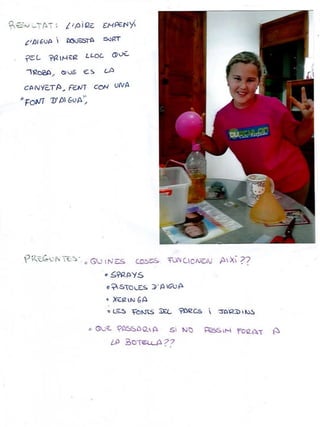 RESULTAT: L'AIRE EMPENYI
L'AIGUA I AQUESTA SURT
PEL PRIMER LLOC QUE
TROBA, QUE ES LA
CANYETA, FENT COM UNA
"FONT D'AIGUA",
PREGUNTES: • QUINES COSES FUNCIONEN AIXÍ??
• SPRAYS
• PISTOLES D'AIGUA
• XERINGA
• LES FONTS DEL PARCS I JARDINS
• QUE PASSARIA SI NO FESSIM FORAT A
LA BOTELLA??